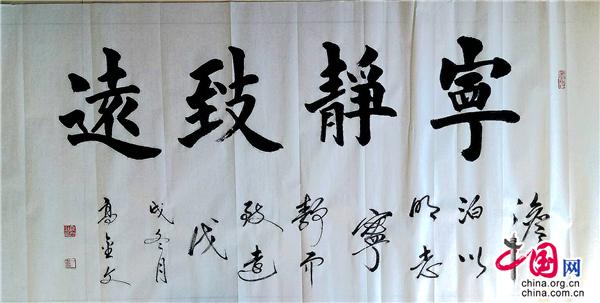 寧靜致遠
澹
泊以
明志
寧
静而
致遠
戊
戌冬月
高金文
中国网
china.org.cn
china.com.cn